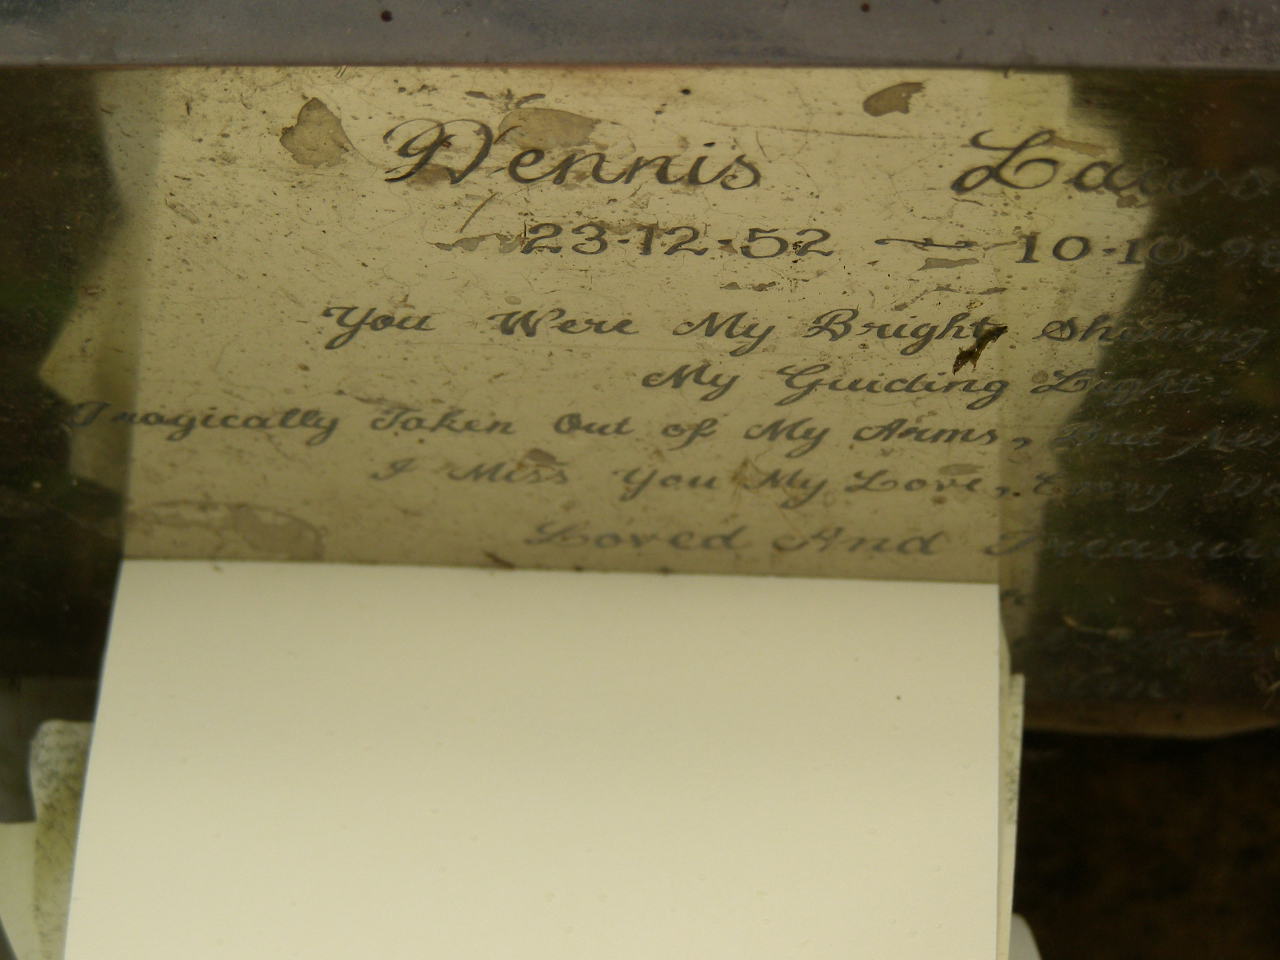 Dennis
23·12·52 ~ 10·10·98
You Were My Bright Shining
My Guiding Light.
Tragically Taken Out of My Arms, But
I Miss You My Love, Every
Loved And